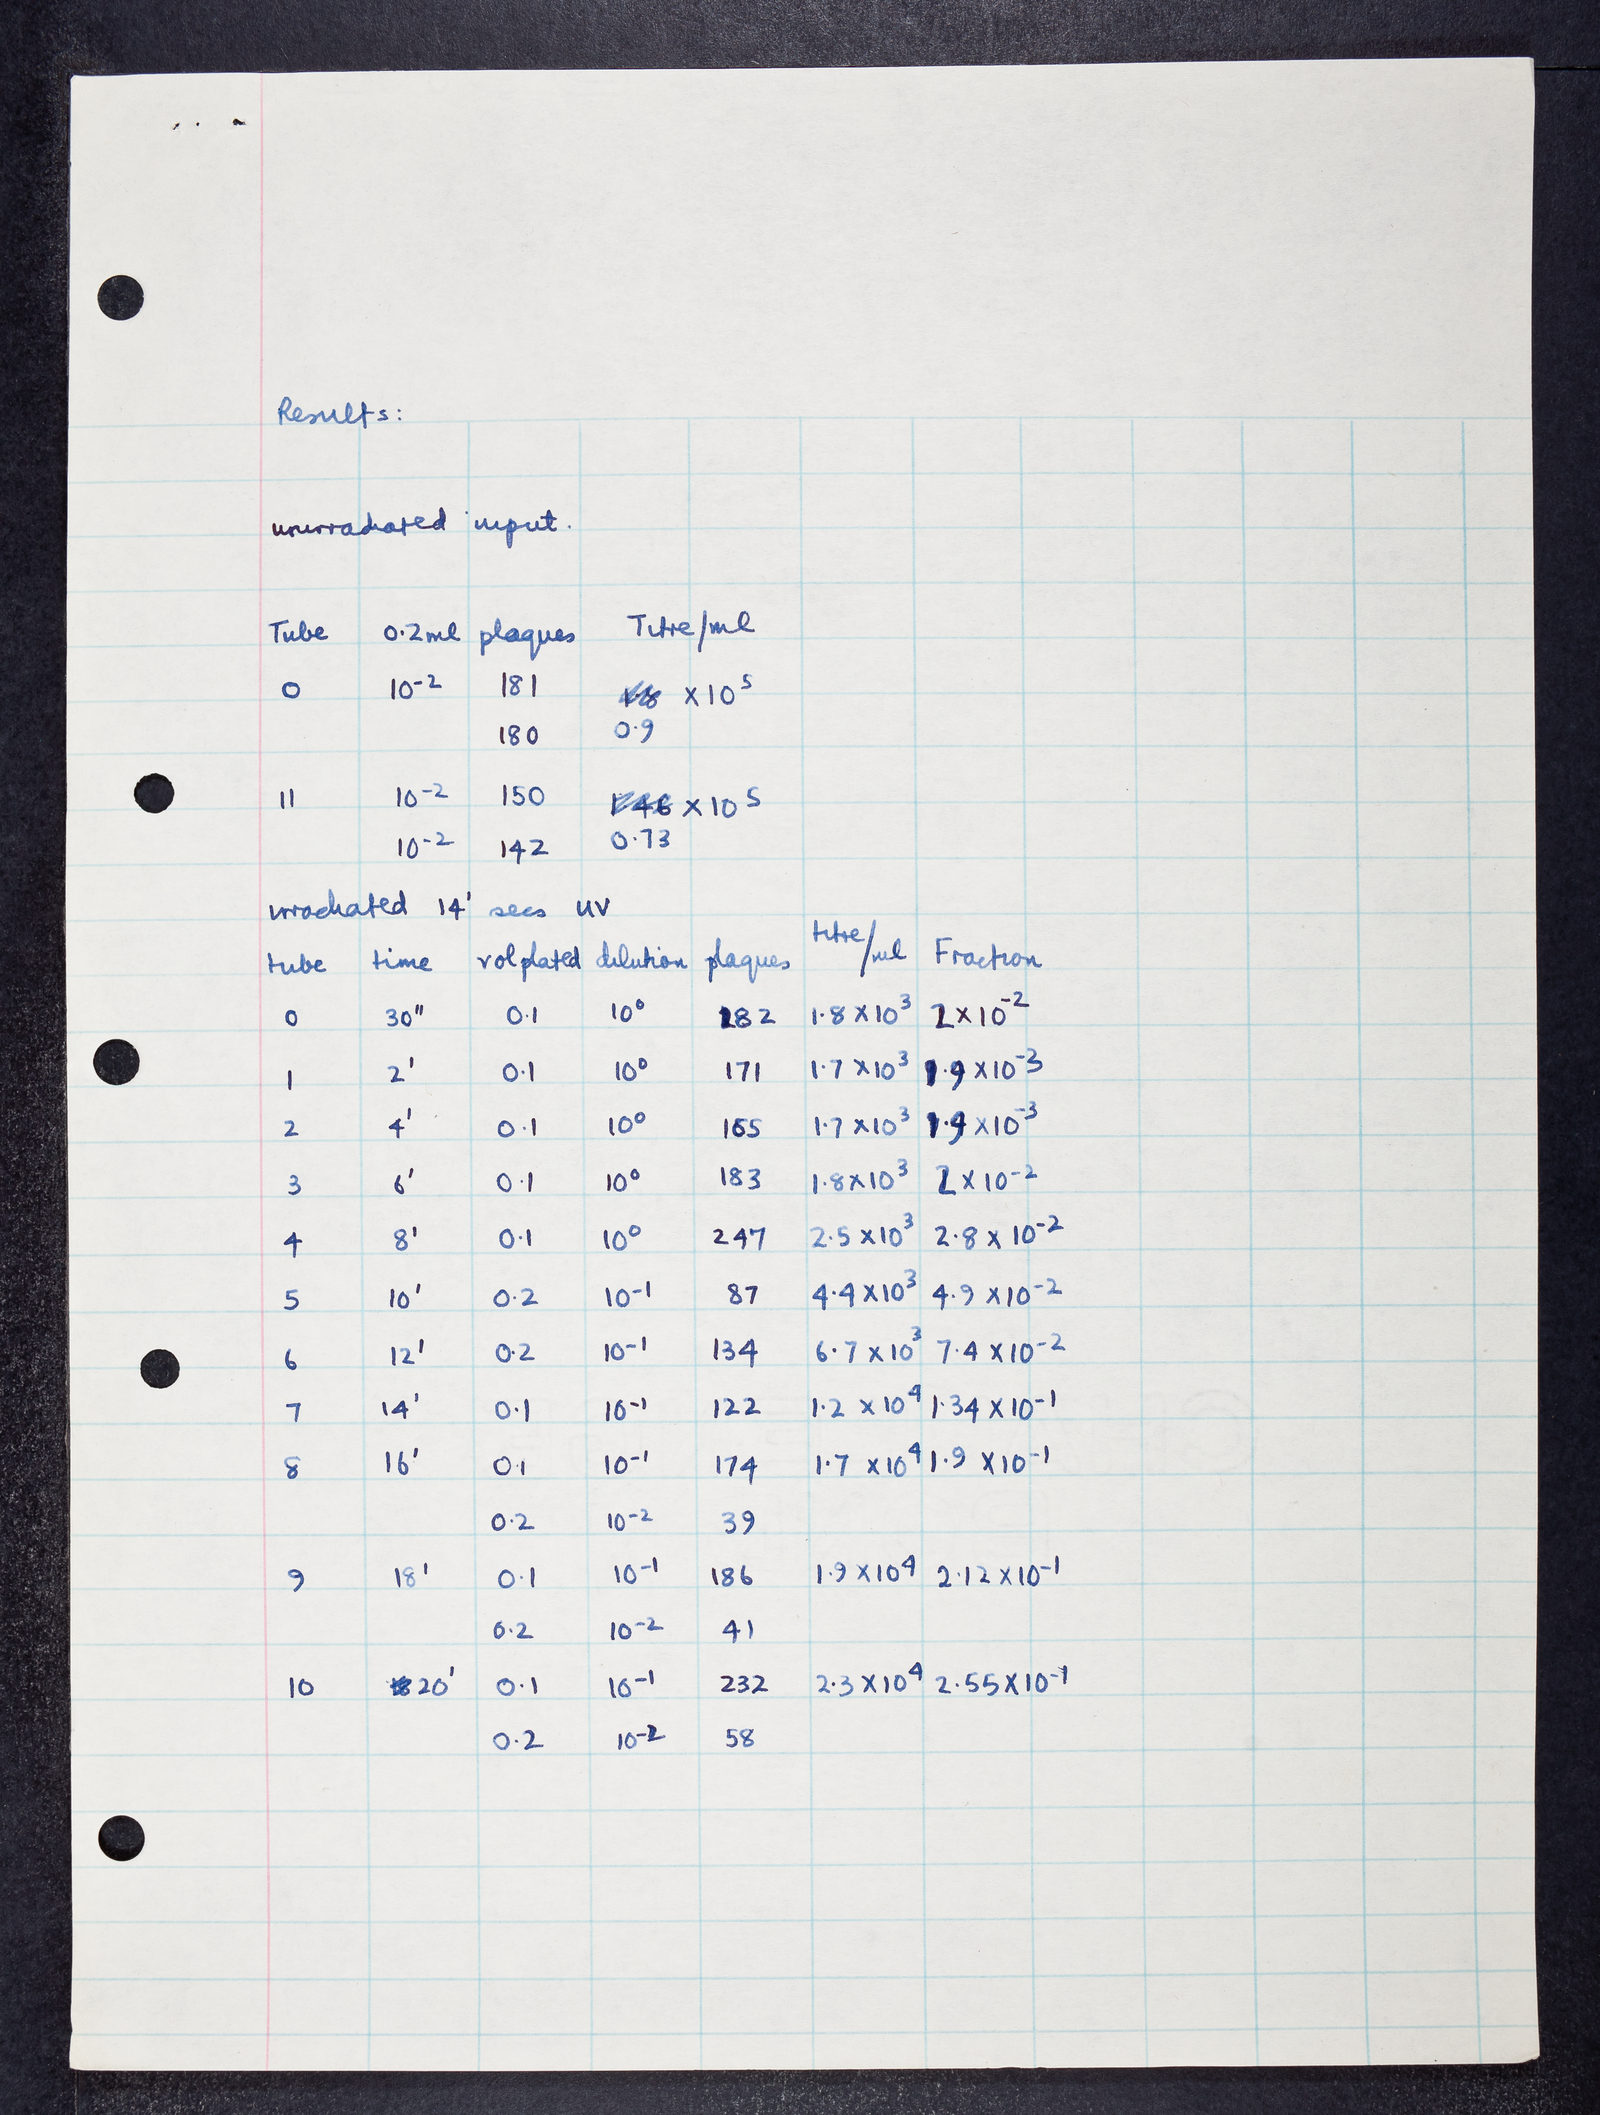 Results:
unirradiated input.
Tube 0.2ml plaques Titre/ml
0 10⁻² 181 ×10⁵
180 0.9
11 10⁻² 150 1.46 ×10⁵
10⁻² 142 0.73
irradiated 14' secs UV
tube time vol plated dilution plaques titre/ml Fraction
0 30" 0.1 10⁰ 182 1.8×10³ 2×10⁻²
1 2' 0.1 10⁰ 171 1.7×10³ 1.9×10⁻³
2 4' 0.1 10⁰ 165 1.7×10³ 1.9×10⁻³
3 6' 0.1 10⁰ 183 1.8×10³ 2×10⁻²
4 8' 0.1 10⁰ 247 2.5×10³ 2.8×10⁻²
5 10' 0.2 10⁻¹ 87 4.4×10³ 4.9×10⁻²
6 12' 0.2 10⁻¹ 134 6.7×10³ 7.4×10⁻²
7 14' 0.1 10⁻¹ 122 1.2×10⁴ 1.34×10⁻¹
8 16' 0.1 10⁻¹ 174 1.7×10⁴ 1.9×10⁻¹
0.2 10⁻² 39
9 18' 0.1 10⁻¹ 186 1.9×10⁴ 2.12×10⁻¹
0.2 10⁻² 41
10 20' 0.1 10⁻¹ 232 2.3×10⁴ 2.55×10⁻¹
0.2 10⁻² 58